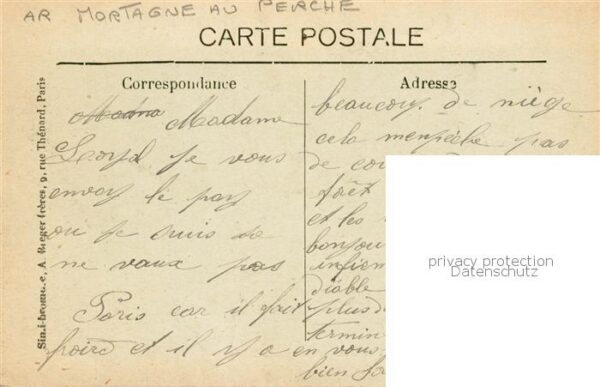 AR MORTAGNE AU PERCHE
CARTE POSTALE
Correspondance
Adresse
A. Rieger frères, 9, rue Thénard, Paris
Madame
je vous
envoy le pay
ou je suis sa
ne vaux pas
Paris car il fait
froird et il y a
beaucoup de niège
cela menpêche pas
de
forêt
et les
bonjour
diable
plus de
termin
en vous
bien
privacy protection
Datenschutz